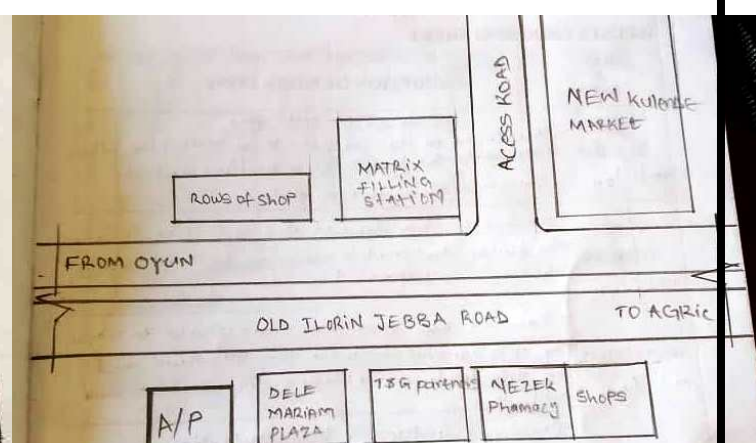 ACESS ROAD
NEW Kulende
MARKET
MATRIX
FILLING
STATION
ROWS of SHOP
FROM OYUN
OLD ILORIN JEBBA ROAD
TO AGRIC
A/P
DELE
MARIAM
PLAZA
NEZEK
Phamacy
Shops